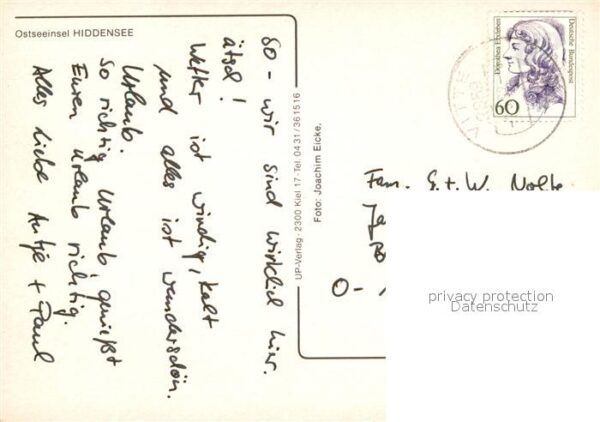 Ostseeinsel HIDDENSEE
So - wir sind wirklich hier.
ätsch!
Wetter ist windig, kalt
und alles ist wunderschön.
Urlaub.
So richtig Urlaub, genießt
Euren Urlaub richtig.
Alles Liebe Antje + Paul
UP-Verlag · 2300 Kiel 17 · Tel. 0431/361516
Foto: Joachim Eicke.
Dorothea Erxleben
Deutsche Bundespost
60
VITTE
Fam. G. + W. Nolte
O-
privacy protection
Datenschutz